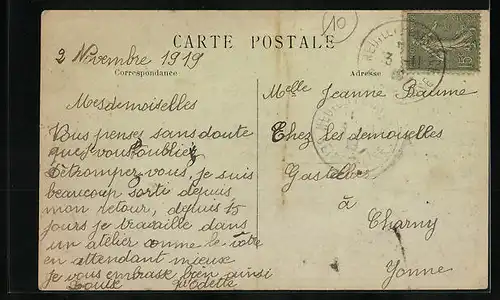 10
CARTE POSTALE
2 Novembre 1919
Correspondance
Adresse
Mesdemoiselles
Vous pensez sans doute
que j vous oubliez
Détrompez vous, je suis
beaucoup sorti depuis
mon retour, depuis 15
jours je travaille dans
un atelier comme le votre
en attendant mieux
je vous embrasse bien ainsi
Odette
Melle Jeanne Baume
Chez les demoiselles
Gastellier
à
Charny
Yonne